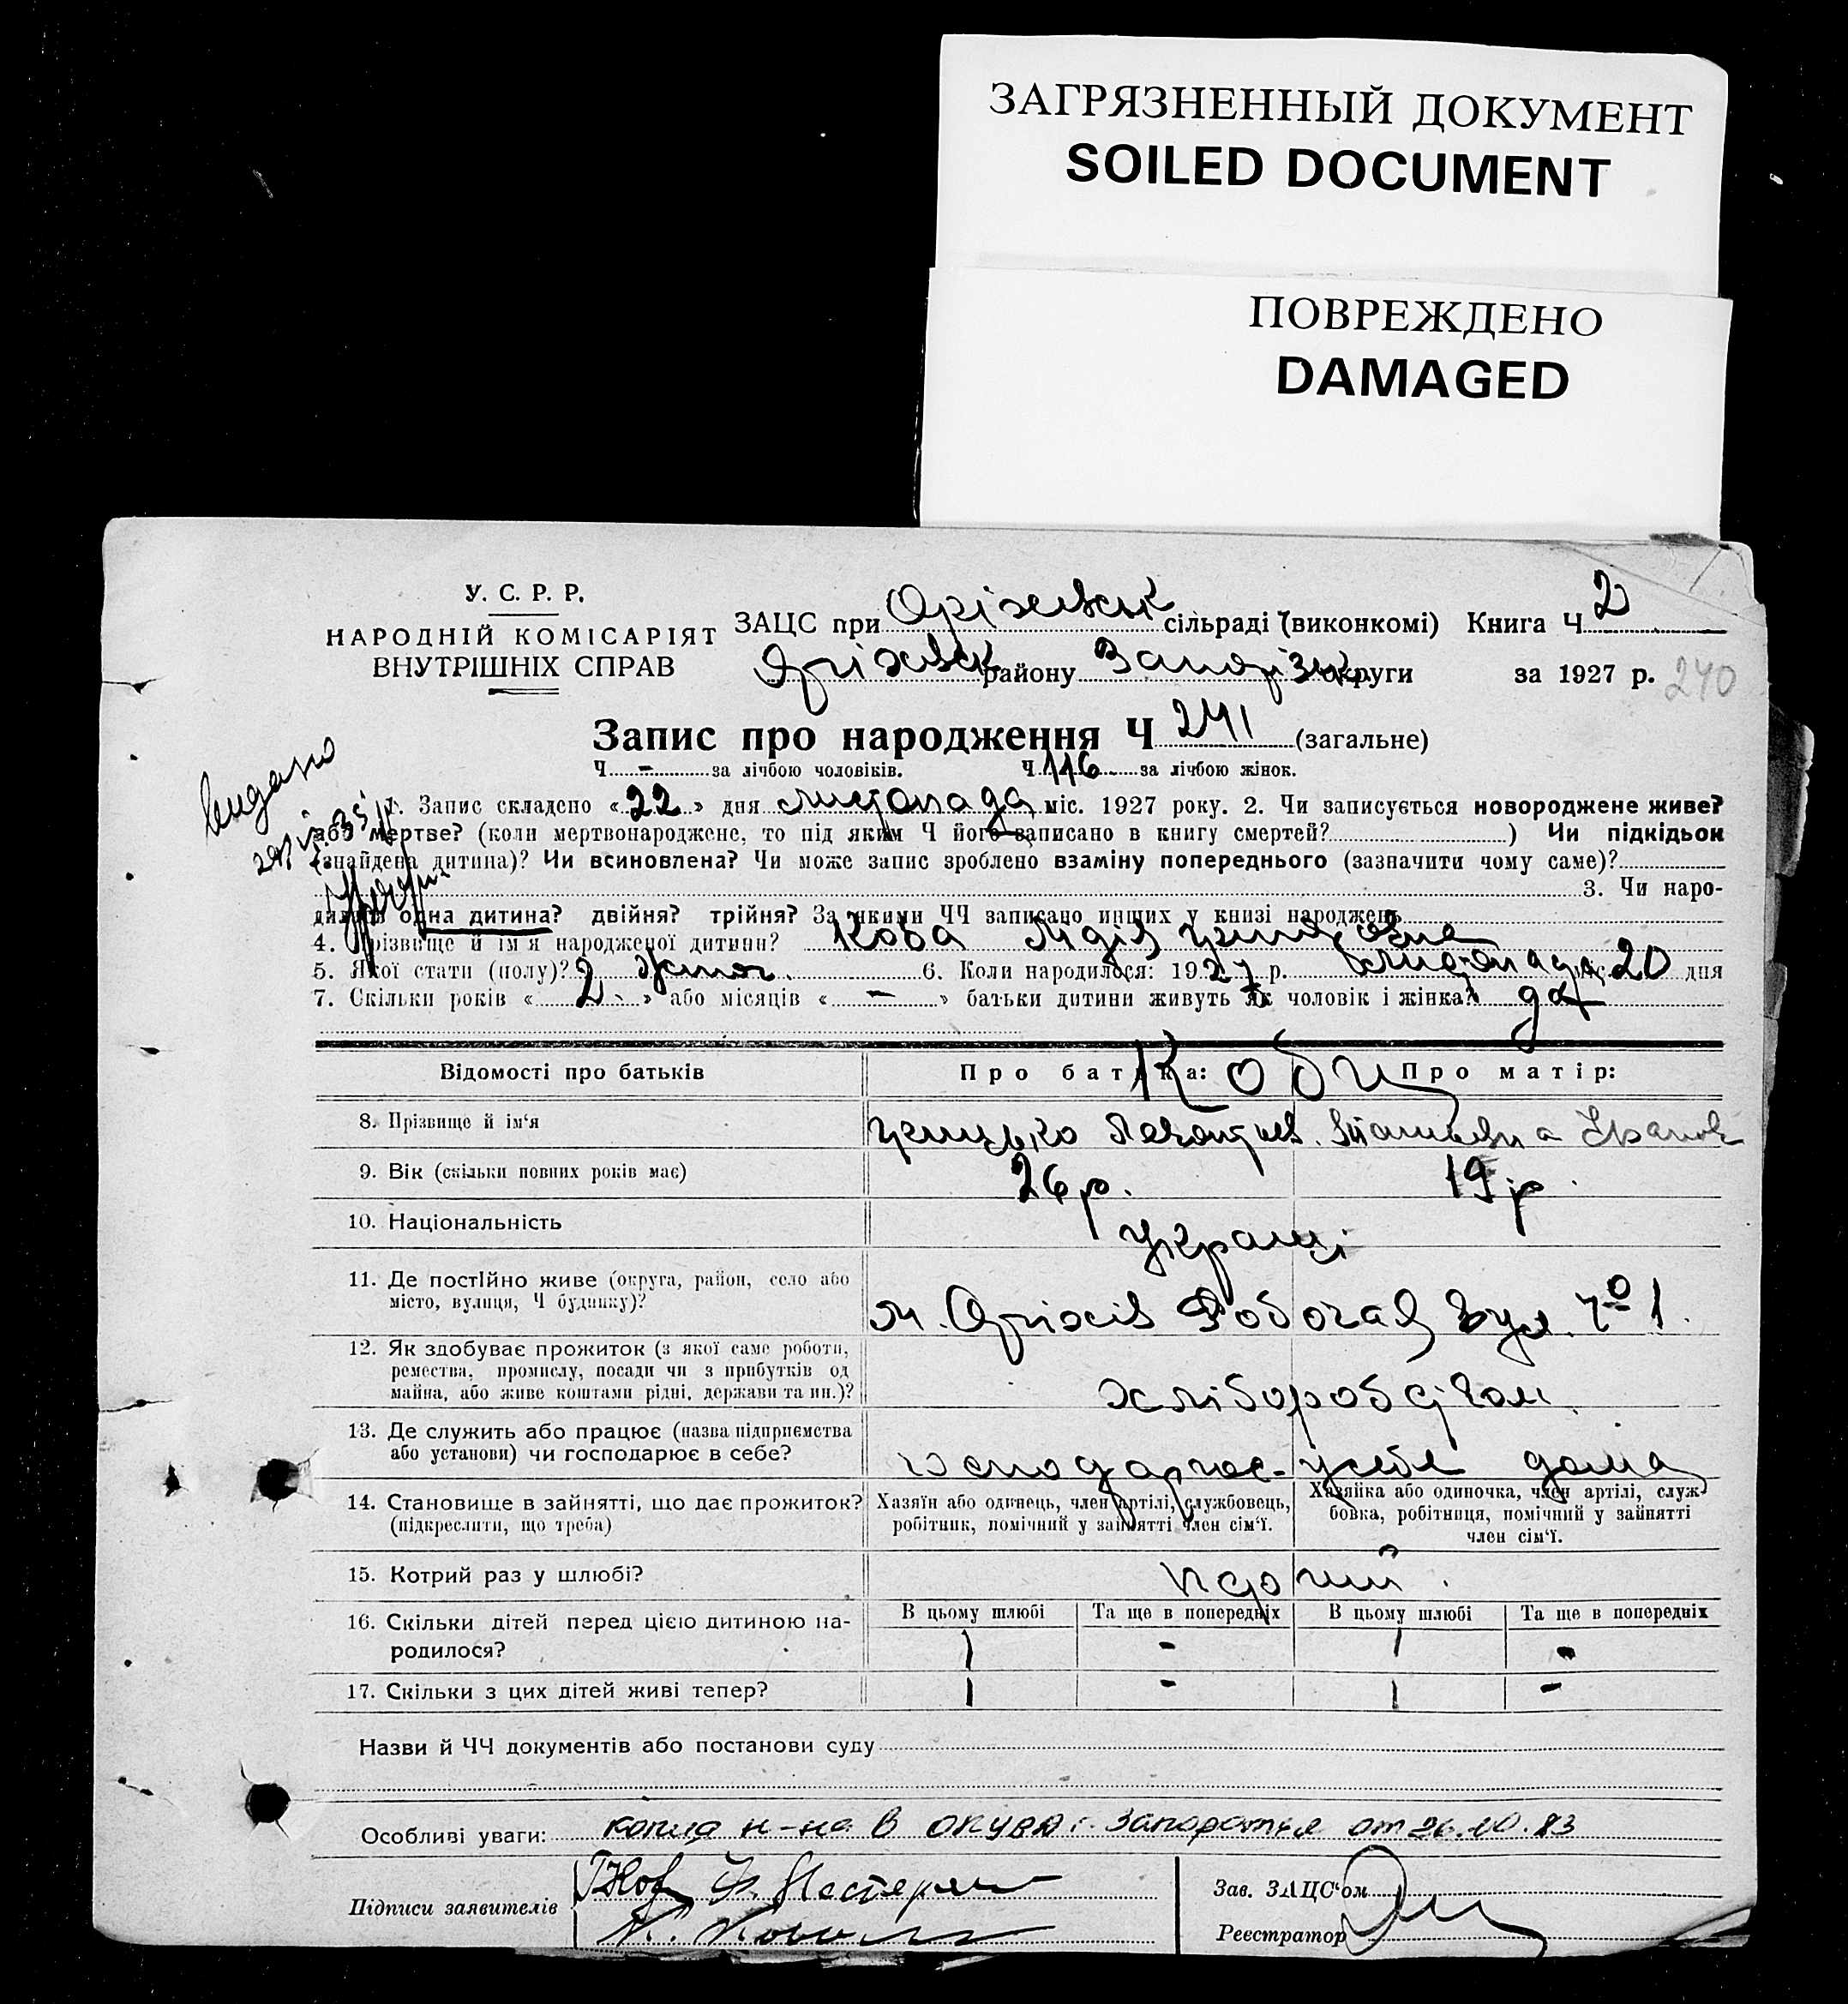 ЗАГРЯЗНЕННЫЙ ДОКУМЕНТ
SOILED DOCUMENT
ПОВРЕЖДЕНО
DAMAGED
У. С. Р. Р.
НАРОДНІЙ КОМІСАРІЯТ
ВНУТРІШНІХ СПРАВ
ЗАЦС при Оріхівськ сільраді (виконкомі) Книга Ч 2
Оріхівск району Запорізьк округи за 1927 р. 240
Запис про народження Ч 241 (загальне)
Ч - за лічбою чоловіків. Ч 116 за лічбою жінок.
видано
1. Запис складено «22» дня листопада міс. 1927 року. 2. Чи записується новороджене живе?
або мертве? (коли мертвонароджене, то під яким Ч його записано в книгу смертей? ) Чи підкідьок
(знайдена дитина)? Чи всиновлена? Чи може запис зроблено взаміну попереднього (зазначити чому саме)?
3. Чи наро-
дилась одна дитина? двійня? трійня? За якими ЧЧ записано инших у книзі народжень
4. Прізвище й ім'я народженої дитини? Коба Лідія
5. Якої стати (полу)? 2 жіноч. 6. Коли народилося: 1927 р. листопада міс. 20 дня
7. Скільки років «2» або місяців «-» батьки дитини живуть як чоловік і жінка? да
Відомості про батьків
Про батька: Про матір:
Коби
8. Прізвище й ім'я
9. Вік (скільки повних років має) 26 р. 19 р.
10. Національність українці
11. Де постійно живе (округа, район, село або
місто, вулиця, Ч будинку)?
м. Оріхів Робочая вул. Ч° 1.
12. Як здобуває прожиток (з якої саме роботи,
ремества, промислу, посади чи з прибутків од
майна, або живе коштами рідні, держави та ин.)?
хліборобством.
13. Де служить або працює (назва підприємства
або установи) чи господарює в себе?
господарює у себе дома
14. Становище в зайнятті, що дає прожиток?
(підкреслити, що треба)
Хазяїн або одинець, член артілі, службовець,
робітник, помічний у зайнятті член сім'ї.
Хазяйка або одиночка, член артілі, служ-
бовка, робітниця, помічний у зайнятті
член сім'ї.
15. Котрий раз у шлюбі?
16. Скільки дітей перед цією дитиною на-
родилося?
В цьому шлюбі Та ще в попередніх В цьому шлюбі Та ще в попередніх
1 - 1 -
17. Скільки з цих дітей живі тепер? 1 - 1 -
Назви й ЧЧ документів або постанови суду
Особливі уваги: копия н-на в г. Запорожья от 26.10.83
Підписи заявителів
Зав. ЗАЦС'ом
Реєстратор